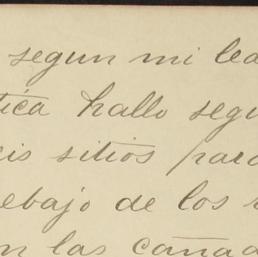 segun mi lea
tica hallo segu
cis sitios para
ebajo de los
on las cañad